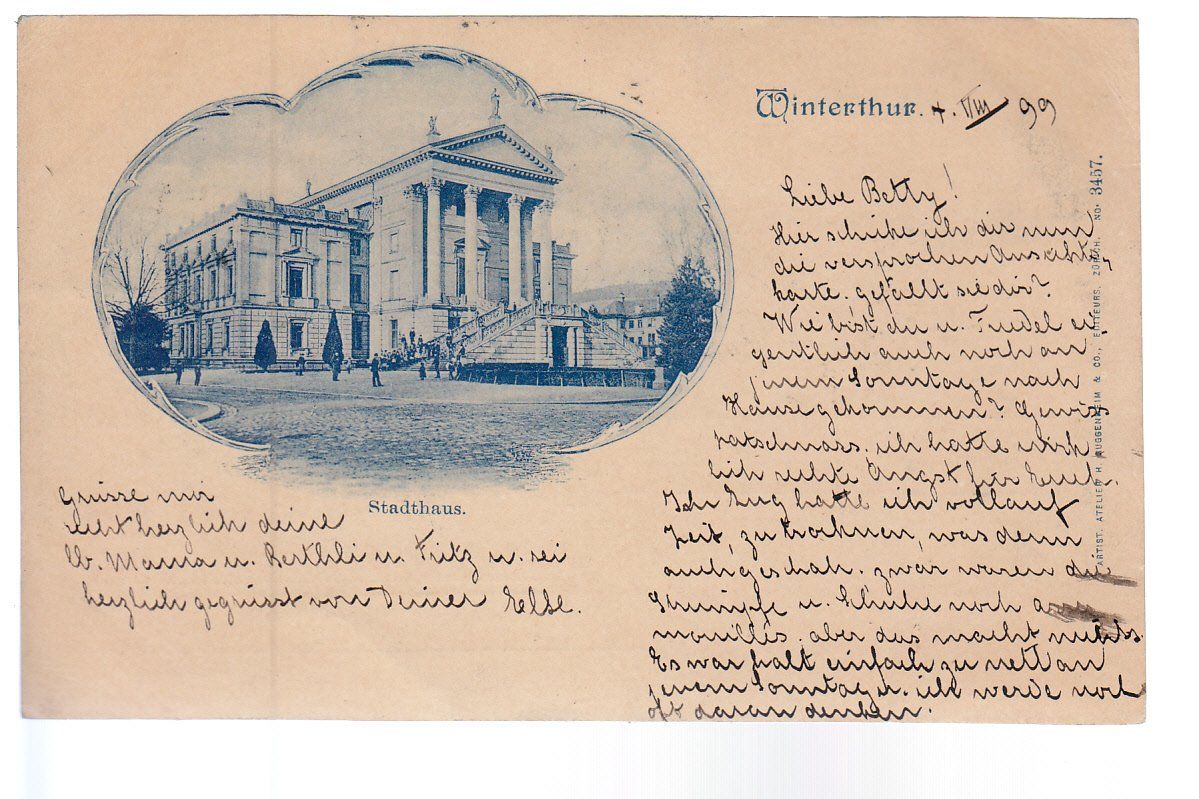 Winterthur. 4. VIII 99
Liebe Betty!
Hier schike ich dir nun
die versprochen Ansichts,
karte. gefällt sie dir?
Wie bist du u. Trudel ei,
gentlich auch noch an
jenem Sonntage nach
Hause gekommen? Gewiss
patschnass. ich hatte wirk
lich rechte Angst für Euch.
Im Zug hatte ich vollauf
Zeit, zu trocknen, was denn
auch geschah. zwar waren die
Strümpfe u. Schuhe noch
mouillés. aber das macht nichts.
Es war halt einfach zu nett an
jenem Sonntag u. ich werde noch
oft daran denken.
Stadthaus.
Grüsse mir
recht herzlich deine
lb. Mama u. Berthli u. Fritz u. sei
herzlich gegrüsst von Deiner Else.
ARTIST. ATELIER H. GUGGENHEIM & CO., EDITEURS, ZÜRICH. No. 3457.